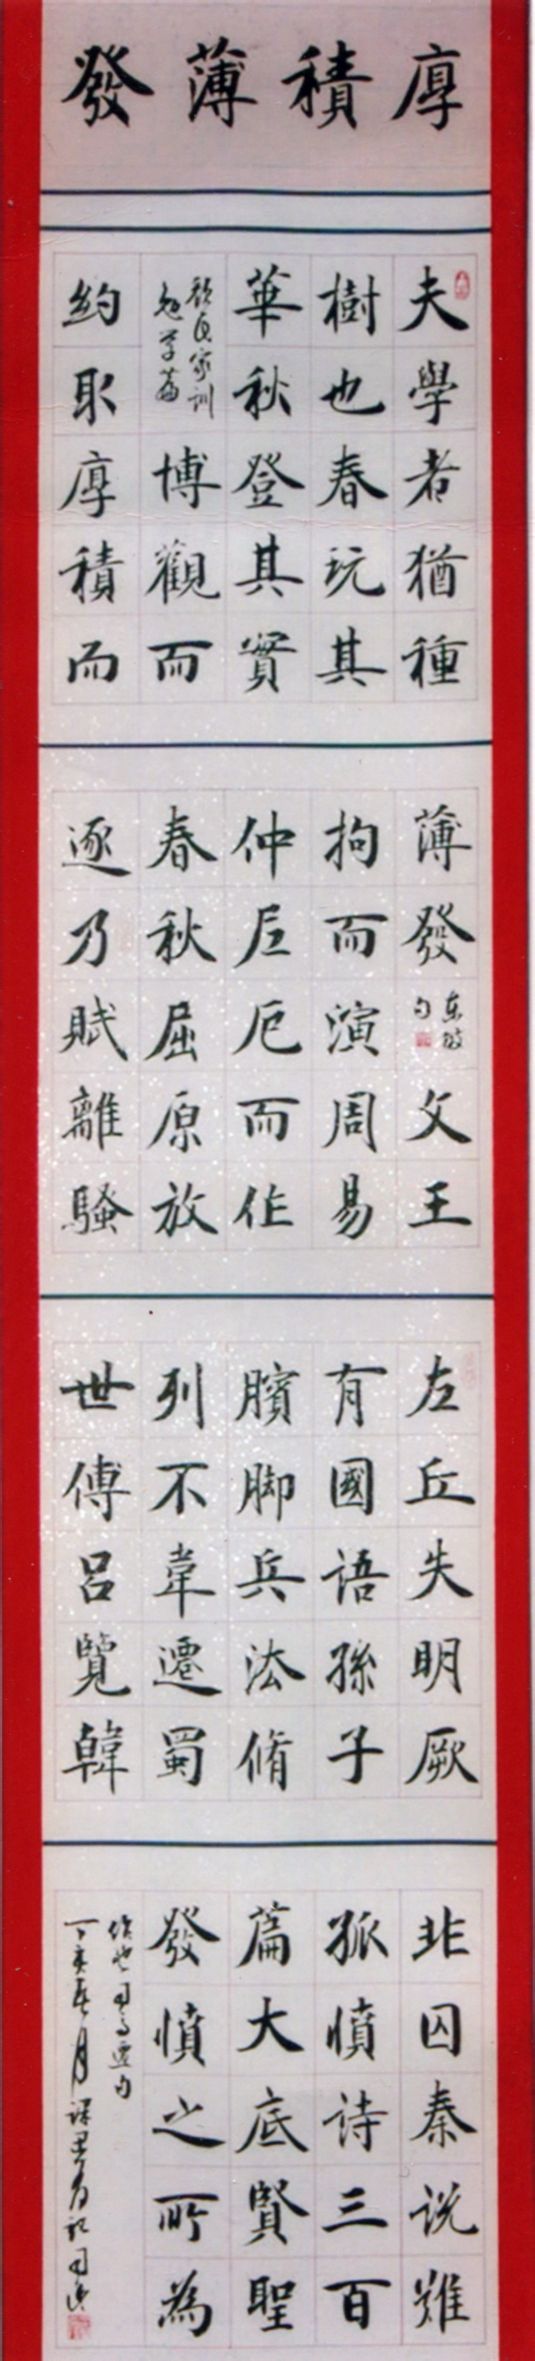 厚積薄發
夫學者猶種
樹也春玩其
華秋登其實
顏氏家訓
勉学篇
博觀而
約取厚積而
薄發
東坡
句
文王
拘而演周易
仲尼厄而作
春秋屈原放
逐乃賦離騷
左丘失明厥
有國語孫子
臏脚兵法脩
列不韋遷蜀
世傳呂覽韓
非囚秦说難
孤憤诗三百
篇大底賢聖
發憤之所為
作也司馬遷句
丁亥